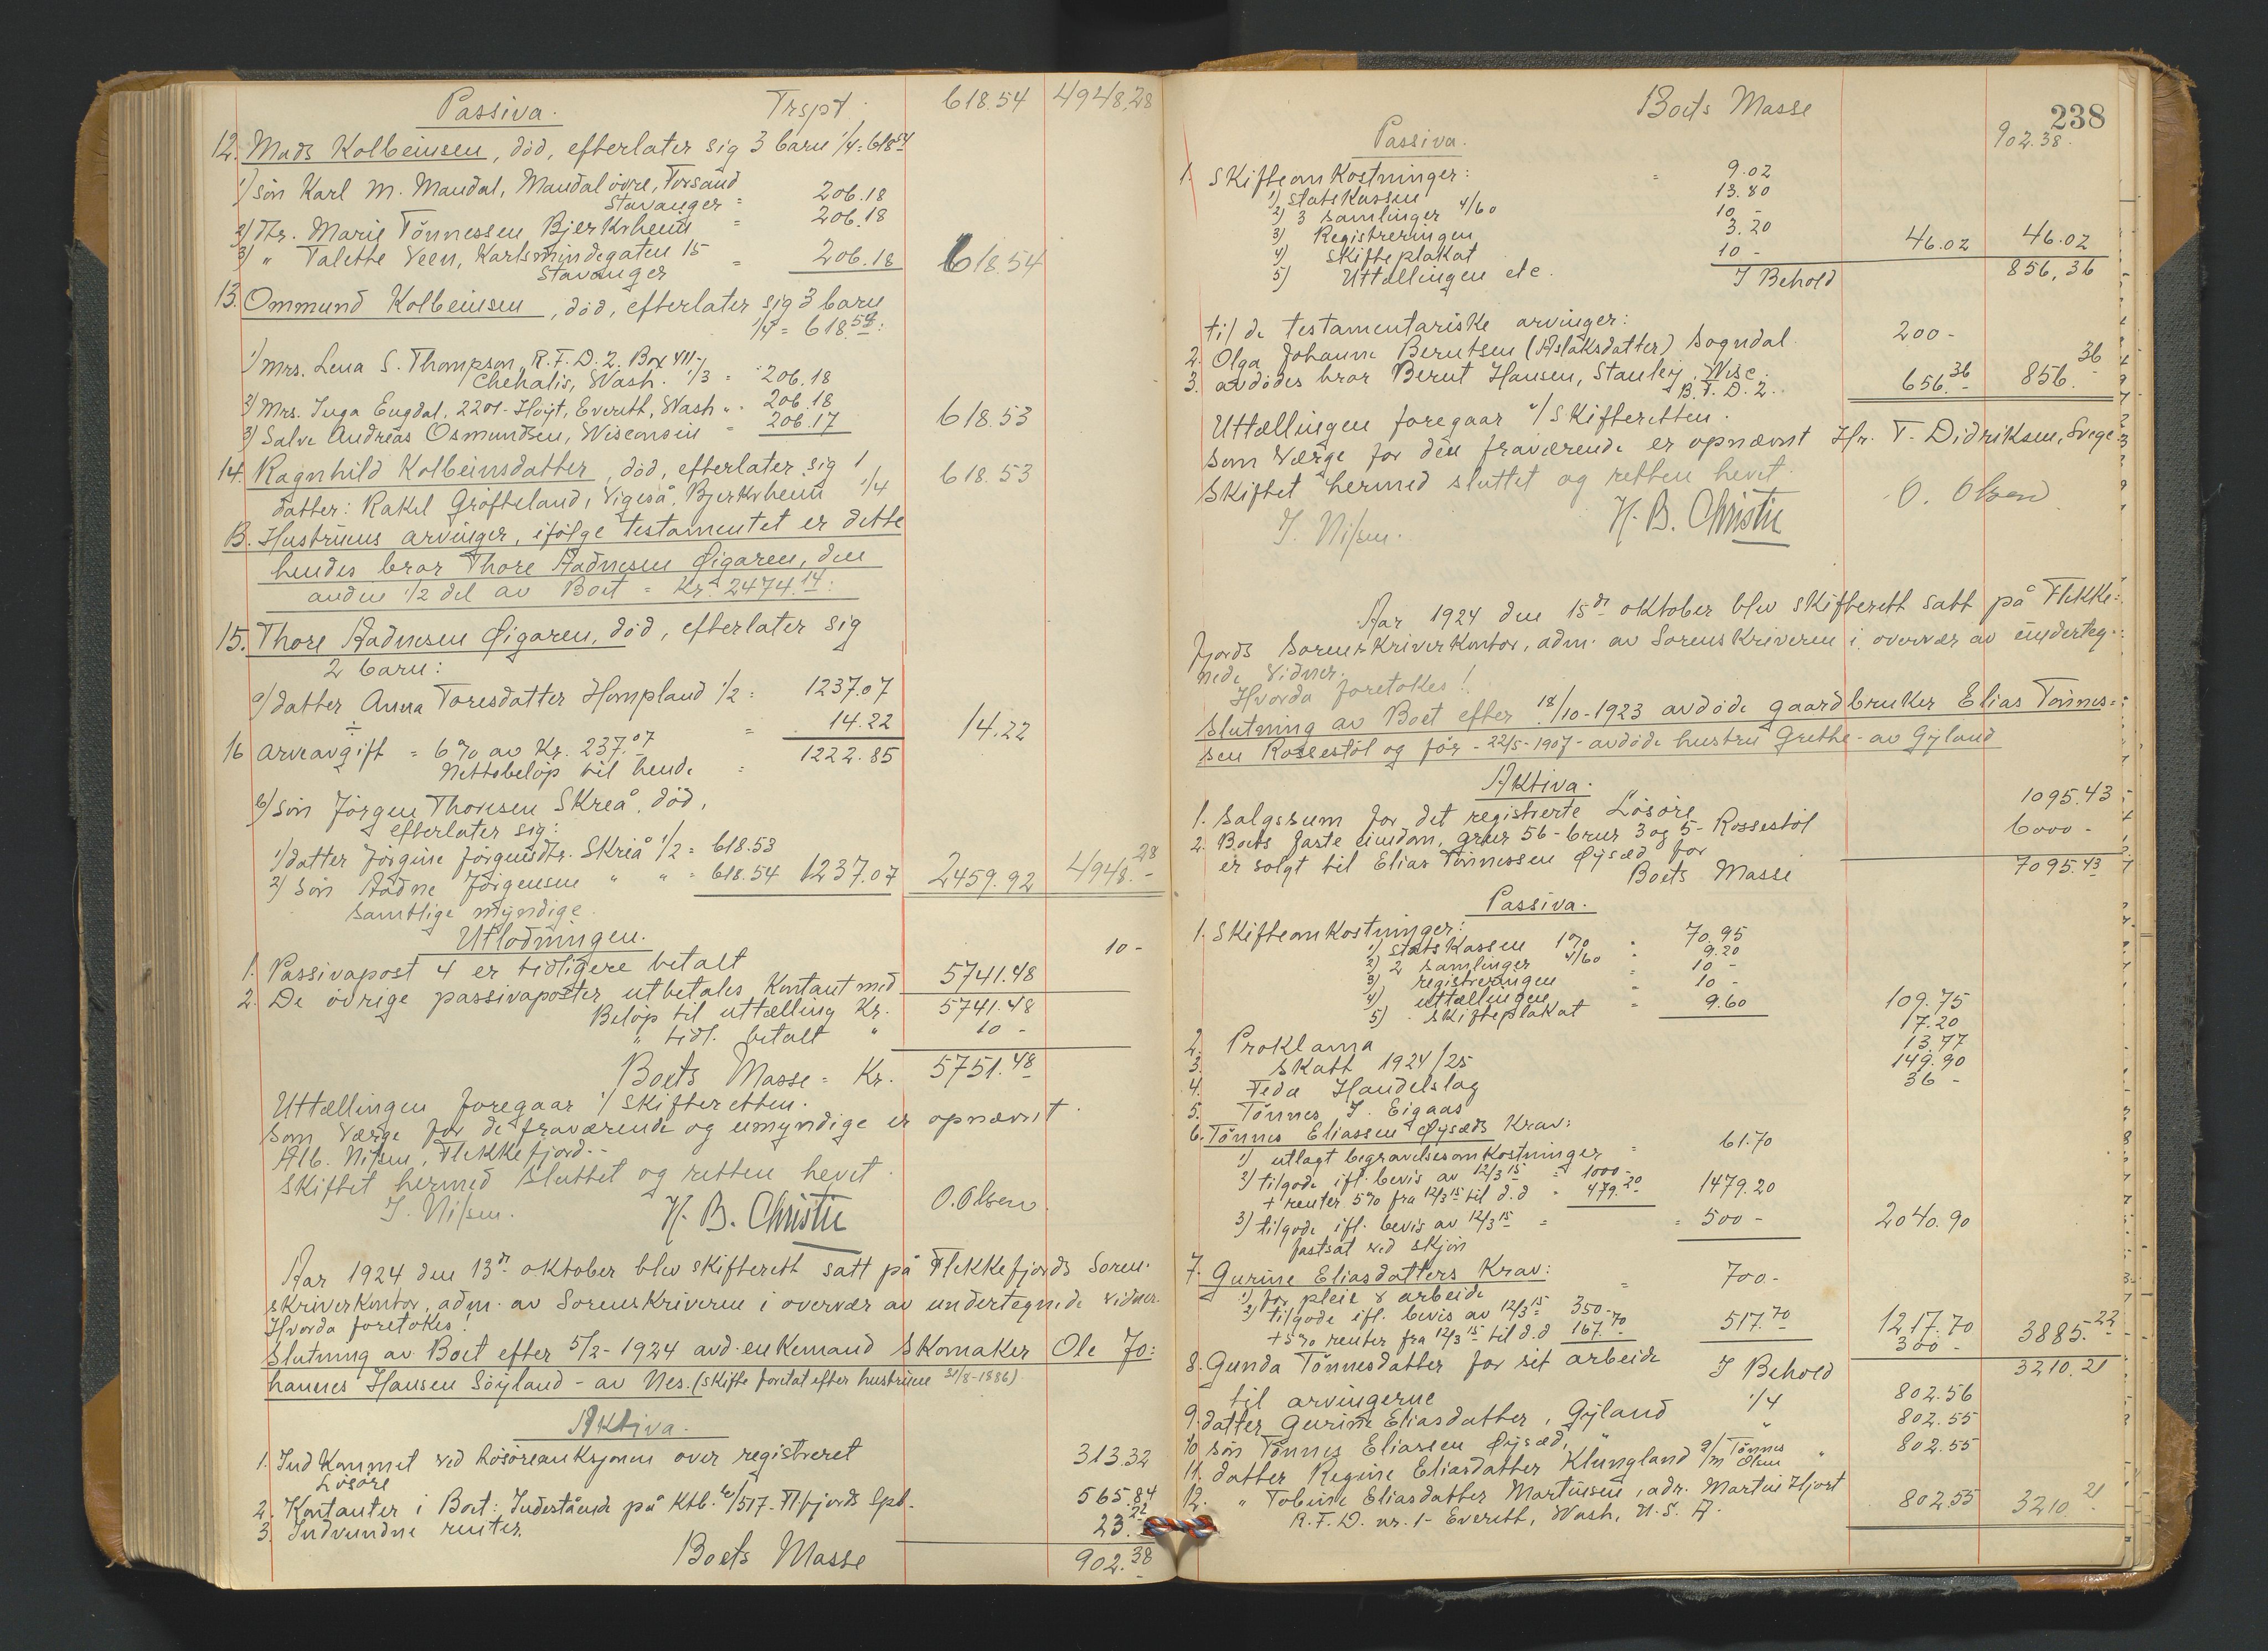 Passiva. Trspt. 618.54 4948,28
12. Mads Kolbeinsen, död, efterlater sig 3 barn 1/4 = 618.54
1) Sön Karl M. Maudal, Maudal övre, Forsand
Stavanger = 206.18
2) Dtr. Marie Tönnessen Bjerkrheim = 206.18
3) " Talette Veen, Karlsmindegaten 15
Stavanger = 206.18 618.54
13. Ommund Kolbeinsen, död, efterlater sig 3 barn
1/4 = 618.54:
1) Mrs. Lena S. Thompson, R.F.D. 2. Box 411-
Chehalis, Wash. 1/3 = 206.18
2) Mrs. Inga Engdal, 2201- Hoyt, Everett, Wash " 206.18
3) Salve Andreas Osmundsen, Wisconsin = 206.17 618.53
14. Ragnhild Kolbeinsdatter, död, efterlater sig 1
datter: Rakel Gröfteland, Vigeså, Bjerkrheim 1/4 618.53
B. Hustruens arvinger, ifölge testamentet er dette
hendes bror Thore Aadnesen Øigaren, den
anden 1/2 del av Boet = Kr. 2474.14:
15. Thore Aadnesen Øigaren, död, efterlater sig
2 barn:
a) datter Anna Toresdatter Hompland 1/2 = 1237.07
÷
16 arveavgift = 6% av Kr. 237.07 = 14.22 14.22
Nettobelöp til hende = 1222.85
b) Sön Jörgen Thoresen Skreå, död,
efterlater sig:
1) datter Jörgine Jörgensdtr. Skreå 1/2 = 618.53
2) Sön Aadne Jörgensen " " = 618.54 1237.07 2459.92 4948.28
samtlige myndige.
Utlodningen.
1. Passivapost 4 er tidligere betalt 10 -
2. De övrige passivaposter utbetales kontant med 5741.48
Belöp til uttælling Kr. 5741.48
" tidl. betalt " 10 -
Boets Masse = Kr. 5751.48
Uttællingen foregaar i Skifteretten.
Som Værge for de fraværende og umyndige er opnævnt
Alb. Nilsen, Flekkefjord.-
Skiftet hermed sluttet og retten hevet.
J. Nilsen. H. B. Christie O. Olsen.
Aar 1924 den 13de oktober blev skifterett satt på Flekkefjords Soren-
skriverkontor, adm. av Sorenskriveren i overvær av undertegnede vidner.
Hvorda foretokes!
Slutning av Boet efter 5/2-1924 avd. enkemand Skomaker Ole Jo=
hannes Hansen Söyland - av Nes. (Skifte foretat efter hustruen 31/8-1886)
Aktiva.
1. Indkommet ved Lösöreauksjonen over registreret
Lösöre 313.32
2. Kontanter i Boet: Indestående på Ktb. 517- Fl.fjords Spb.- 565.84
3. Indvundne renter 23.22
Boets Masse 902.38
238
Boets Masse 902.38.
Passiva.
1. Skifteomkostninger:
1) Statskassen = 9.02
2) 3 Samlinger 4/60 13.80
3) Registreringen 10 -
4) Skifteplakat 3.20
5) Uttællingen etc. 10 - 46.02 46.02
I Behold 856,36
til de testamentariske arvinger:
2. Olga Johanne Berntsen (Aslaksdatter) Sogndal 200 -
3. avdödes bror Bernt Hansen, Stanley, Wisc.
B.F.D. 2. 656.36 856.36
Uttællingen foregaar i Skifteretten.
Som Værge for den fraværende er opnævnt Hr. T. Didriksen, Svege
Skiftet hermed sluttet og retten hevet.
J. Nilsen. H. B. Christie O. Olsen
Aar 1924 den 15de oktober blev skifterett satt på Flekke=
fjords Sorenskriverkontor, adm. av Sorenskriveren i overvær av underteg-
nede vidner.
Hvorda foretokes!
Slutning av Boet efter 18/10-1923 avdöde gaardbruker Elias Tönnes=
sen Rossestöl og för - 22/5-1907- avdöde hustru Grethe - av Gyland
Aktiva.
1. Salgssum for det registrerte Lösöre 1095.43
2. Boets faste eiendom, gnr 56 - bnr 3 og 5 - Rossestöl
er solgt til Elias Tönnessen Øysæd for 6000 -
Boets Masse 7095.43
Passiva.
1. Skifteomkostninger:
1) Statskassen 1% " 70.95
2) 2 Samlinger 4/60 " 9.20
3) registreringen = 10 -
4) uttællingen " 10 -
5) Skifteplakat = 9.60 109.75
2. Proklama 17.20
3. Skatt 1924/25 13.77
4. Feda Handelslag 149.90
5. Tönnes J. Eigaas 36 -
6. Tönnes Eliassen Øysæds Krav:
1) utlagt begravelsesomkostninger = 61.70
2) tilgode ifl. bevis av 12/3 15 = 1000 -
+ renter 5% fra 12/3 15 til d.d " 479.20 1479.20
3) tilgode ifl. bevis av 12/3 15 =
fastsat ved skjön = 500 - 2040.90
7. Gurine Eliasdatters Krav:
1) for pleie & arbeide = 700 -
2) tilgode ifl. bevis av 12/3 15 = 350 -
+ 5% renter fra 12/3 15 til d.d 167.70 517.70 1217.70
8. Gunda Tönnesdatter for sit arbeide 300 - 3885.22
I Behold 3210.21
til arvingerne
9. datter Gurine Eliasdatter, Gyland 1/4 802.56
10 sön Tönnes Eliassen Øysæd, " " 802.55
11. datter Regine Eliasdatter Klungland g/m Tönnes Olsen " 802.55
12. " Tobine Eliasdatter Martinsen, adr. Martin Hjort
R.F.D. nr. 1- Everett, Wash, U.S.A. 802.55 3210.21